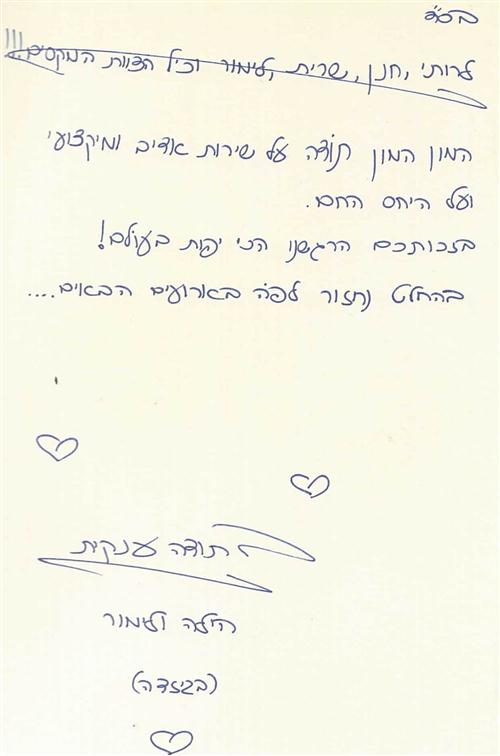 בס"ד
לרותי, חנן, שרית, לימור וכל הצוות המקסים!!!
המון המון תודה על שירות אדיב ומיקצועי
ועל היחס החם.
בזכותכם הרגשנו הכי יפות בעולם!
בהחלט נחזור לפה בארועים הבאים....
תודה ענקית
הילה ולימור